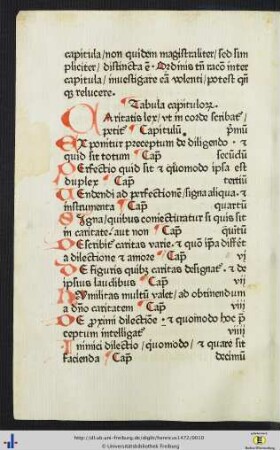 capitula/non quidem magistraliter/sed sim
pliciter/distincta ē· Ordinis tñ racō inter
capitula/inuestigare eā volenti/potest qñ
qȝ relucere.
¶ Tabula capitulorꝝ
CAritatis lex/vt in corde scribat᷑/
petit· Capitulū· pͥmū
EXponitur preceptum de diligendo· et
quid sit totum ¶ Capᷓ secūdū
PErfectio quid sit et qͦmodo ipsa est
duplex ¶ Capᷓ tertiū
TEndendi ad perfectionem/signa aliqua· et
instrumenta ¶ Capᷓ quartū
SIgna/quibus coniecturatur si quis sit
in caritate· aut non ¶ Capᷓ quītū
DEscribit᷑ caritas varie· et quō ipᷓa differt
a dilectione et amore ¶ Capᷓ vj
DE figuris quibꝫ caritas designat᷑· et de
ipsius laudibus ¶ Capᷓ vij
HUmilitas multū valet/ad obtinendum
a dño caritatem ¶ Capᷓ viij
DE pxͥimi dilectiōe· et quomodo hoc p̄
ceptum intelligat᷑ viiij
INimici dilectio/quomodo/et quare sit
facienda ¶ Capᷓ decimū
http://dl.ub.uni-freiburg.de/diglit/henricus1472/0010
© Universitätsbibliothek Freiburg